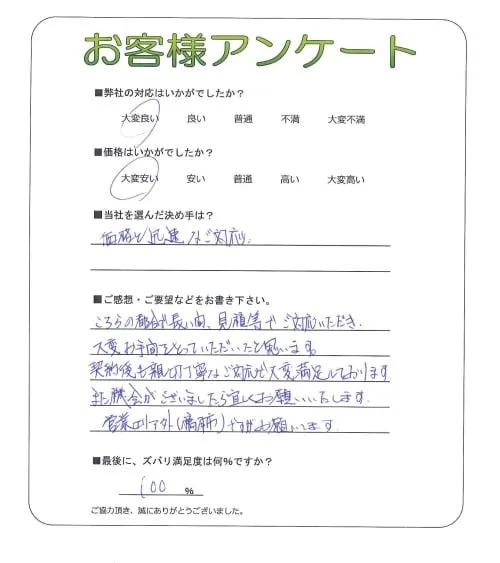 お客様アンケート
■弊社の対応はいかがでしたか？
大変良い 良い 普通 不満 大変不満
■価格はいかがでしたか？
大変安い 安い 普通 高い 大変高い
■当社を選んだ決め手は？
価格と迅速なご対応。
■ご感想・ご要望などをお書き下さい。
こちらの都合で長い間、見積等でご対応いただき、
大変お手間をとっていただいたと思います。
契約後も親切丁寧なご対応で大変満足しております
また機会がございましたら宜しくお願いいたします。
営業エリア外ですがお願いします。
■最後に、ズバリ満足度は何%ですか？
100 %
ご協力頂き、誠にありがとうございました。